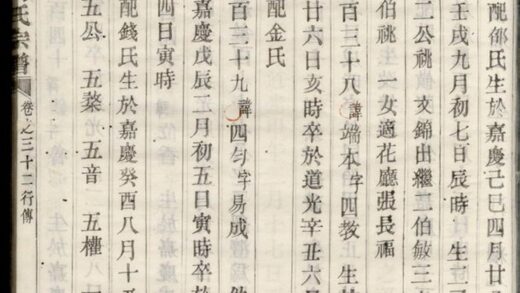 配邵氏生於嘉慶己巳四月廿
壬戌九月初七日辰時 生三
二公祧 文錦出繼二伯敏三
伯祧 一女適花廳張長福
百三十八 諱端本字四教 生
廿六日亥時卒於道光辛丑六月
配金氏
百三十九 諱四勻字易成
嘉慶戊辰二月初五日寅時卒於
四日寅時
配錢氏生於嘉慶癸酉八月十
五公 五蘂 五音 五權
氏宗譜 卷之三十二行傳